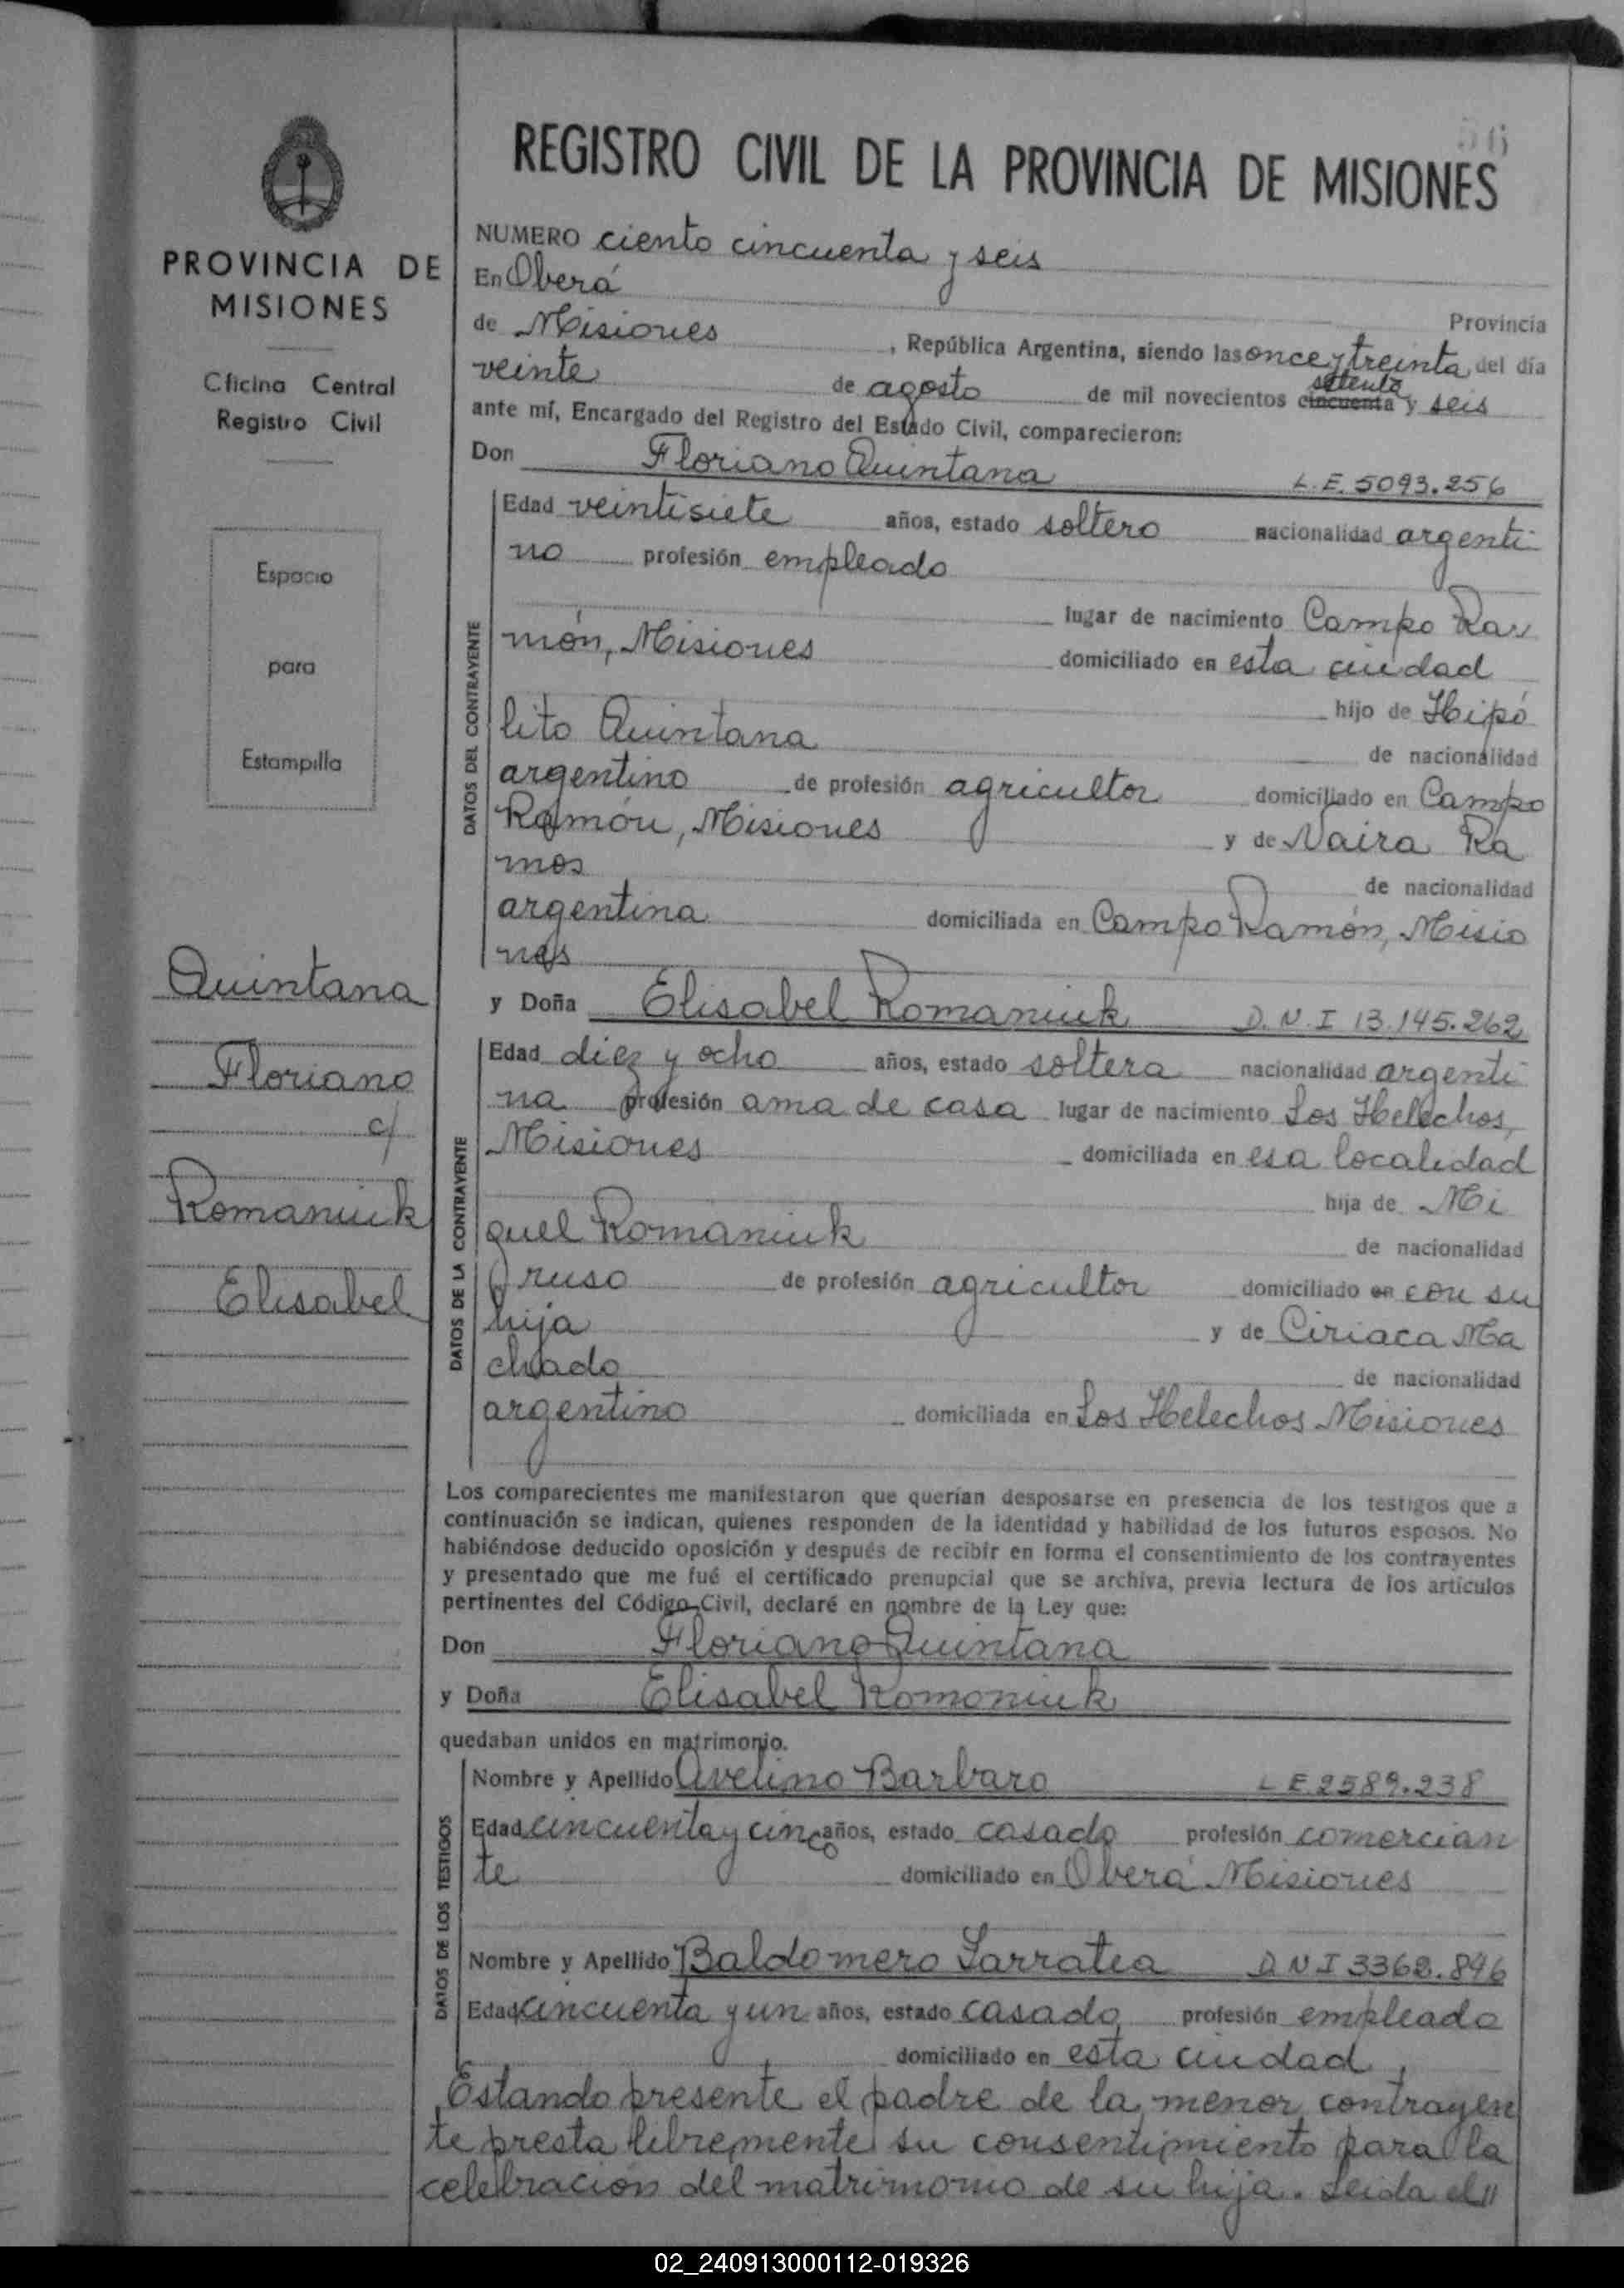 56
REGISTRO CIVIL DE LA PROVINCIA DE MISIONES
PROVINCIA DE
MISIONES
Oficina Central
Registro Civil
Espacio
para
Estampilla
Quintana
Floriano
c/
Romaniuk
Elisabel
NUMERO ciento cincuenta y seis
En Oberá
Provincia
de Misiones, República Argentina, siendo las once y treinta del día
veinte de agosto de mil novecientos cincuenta setenta y seis
ante mí, Encargado del Registro del Estado Civil, comparecieron:
Don Floriano Quintana L.E. 5093.256
DATOS DEL CONTRAYENTE
Edad veintisiete años, estado soltero nacionalidad argenti
no profesión empleado
lugar de nacimiento Campo Ra
món, Misiones domiciliado en esta ciudad
hijo de Hipó
lito Quintana
de nacionalidad
argentino de profesión agricultor domiciliado en Campo
Ramón, Misiones y de Naira Ra
mos
de nacionalidad
argentina domiciliada en Campo Ramón, Misio
nes
y Doña Elisabel Romaniuk D.N.I 13.145.262
DATOS DE LA CONTRAYENTE
Edad diez y ocho años, estado soltera nacionalidad argenti
na profesión ama de casa lugar de nacimiento Los Helechos,
Misiones domiciliada en esa localidad
hija de Mi
guel Romaniuk
de nacionalidad
ruso de profesión agricultor domiciliado en con su
hija y de Ciriaca Ma
chado
de nacionalidad
argentino domiciliada en Los Helechos Misiones
Los comparecientes me manifestaron que querían desposarse en presencia de los testigos que a
continuación se indican, quienes responden de la identidad y habilidad de los futuros esposos. No
habiéndose deducido oposición y después de recibir en forma el consentimiento de los contrayentes
y presentado que me fué el certificado prenupcial que se archiva, previa lectura de los artículos
pertinentes del Código Civil, declaré en nombre de la Ley que:
Don Floriano Quintana
y Doña Elisabel Romoniuk
quedaban unidos en matrimonio.
DATOS DE LOS TESTIGOS
Nombre y Apellido Avelino Barbaro L E.2589.238
Edad cincuenta y cinco años, estado casado profesión comercian
te domiciliado en Oberá Misiones
Nombre y Apellido Baldomero Sarratea D N I 3362.896
Edad cincuenta y un años, estado casado profesión empleado
domiciliado en esta ciudad.
Estando presente el padre de la menor contrayen
te presta libremente su consentimiento para la
celebración del matrimonio de su hija. Leida el//
02_240913000112-019326